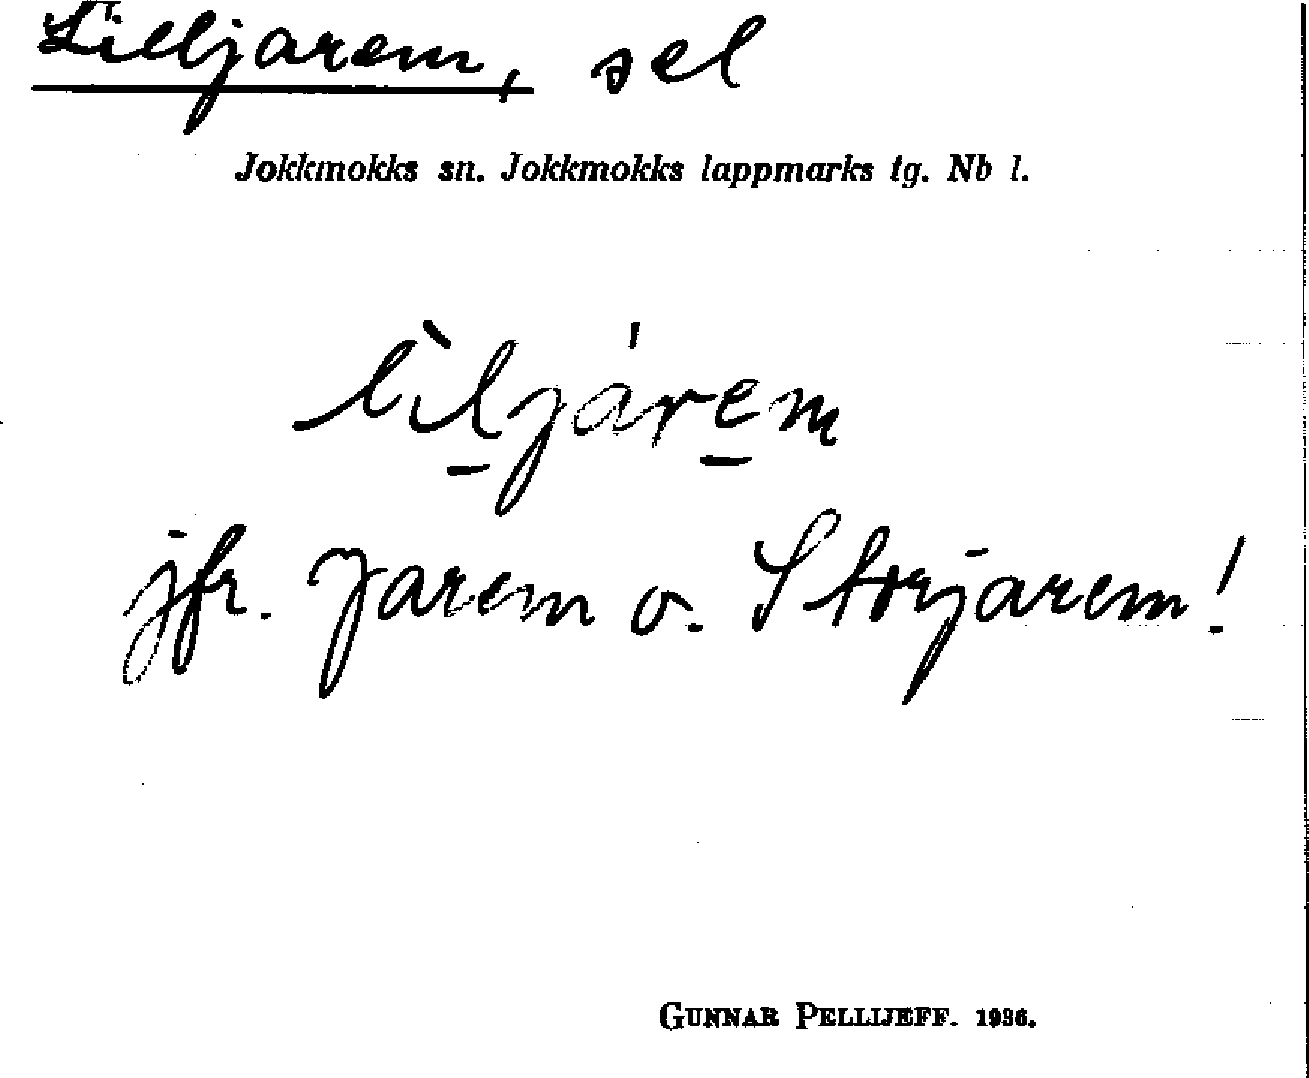 Lilljarem, sel
Jokkmokks sn. Jokkmokks lappmarks tg. Nb l.
lìl̲járe̲m
jfr. Jarem o. Storjarem!
GUNNAR PELLIJEFF. 1936.